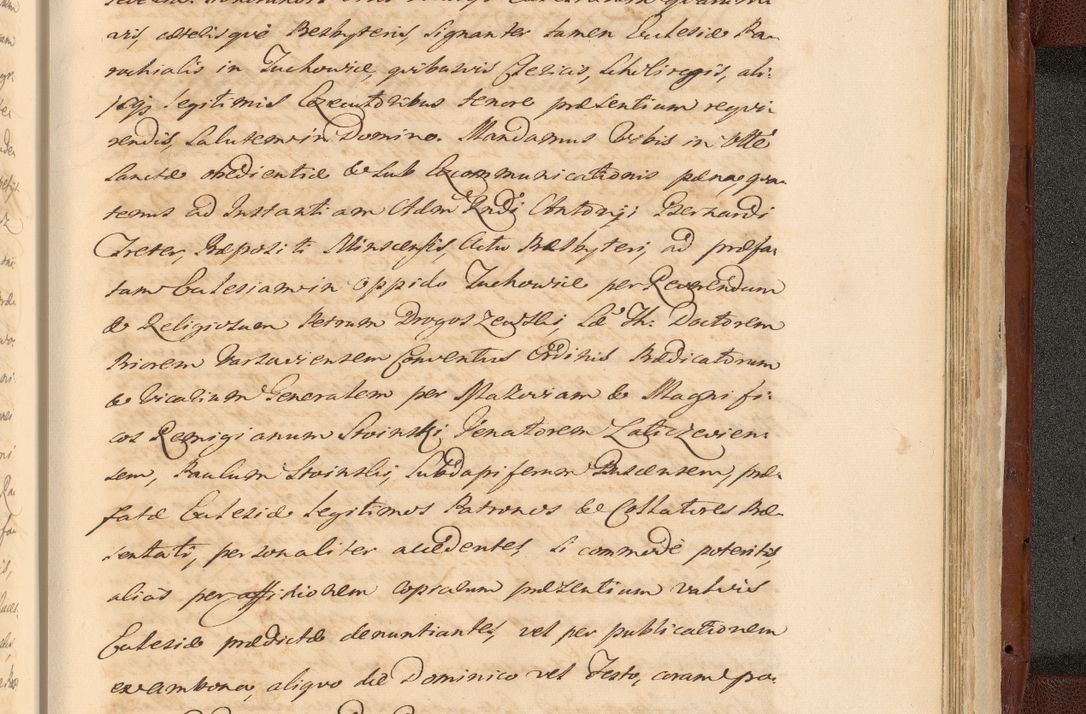 vis, cæterisque Presbyteris, signanter tamen Ecclesiæ Pa-
rochialis in Tuchowicz, quibusvis Clericis, Scholiregis, ali-
isq; legitimis Executoribus tenore præsentium requi-
rendis, salutem in Domino. Mandamus Vobis in Vtte
Sanctæ obedientiæ & sub Excommunicationis pæna, qua-
tenus ad Instantiam Adm Rndi Antonij Bernardi
Treter, Præpositi Minscensis, Actu Presbyteri, ad præfa-
tam Ecclesiam in oppido Tuchowicz per Reverendum
& Religiosum Petrum Drogoszewski, Sæ Th: Doctorem
Priorem Varsaviensem Conventus Ordinis Prædicatorum
& Vicarium Generalem per Mazoviam & Magnifi-
cos Remigianum Stoinski, Venatorem Laticzevien-
sem, Paulum Stoinski, Subdapiferum Buscensem, præ-
fatæ Ecclesiæ legitimos Patronos & Collatores Præ-
sentati, personaliter accedentes, si commodè poteritis,
aliàs per affixionem copiarum præsentium valvis
Ecclesiæ prædictæ denuntiantes, vel per publicationem
ex ambona, aliquo die Dominico vel Festo, coram po-